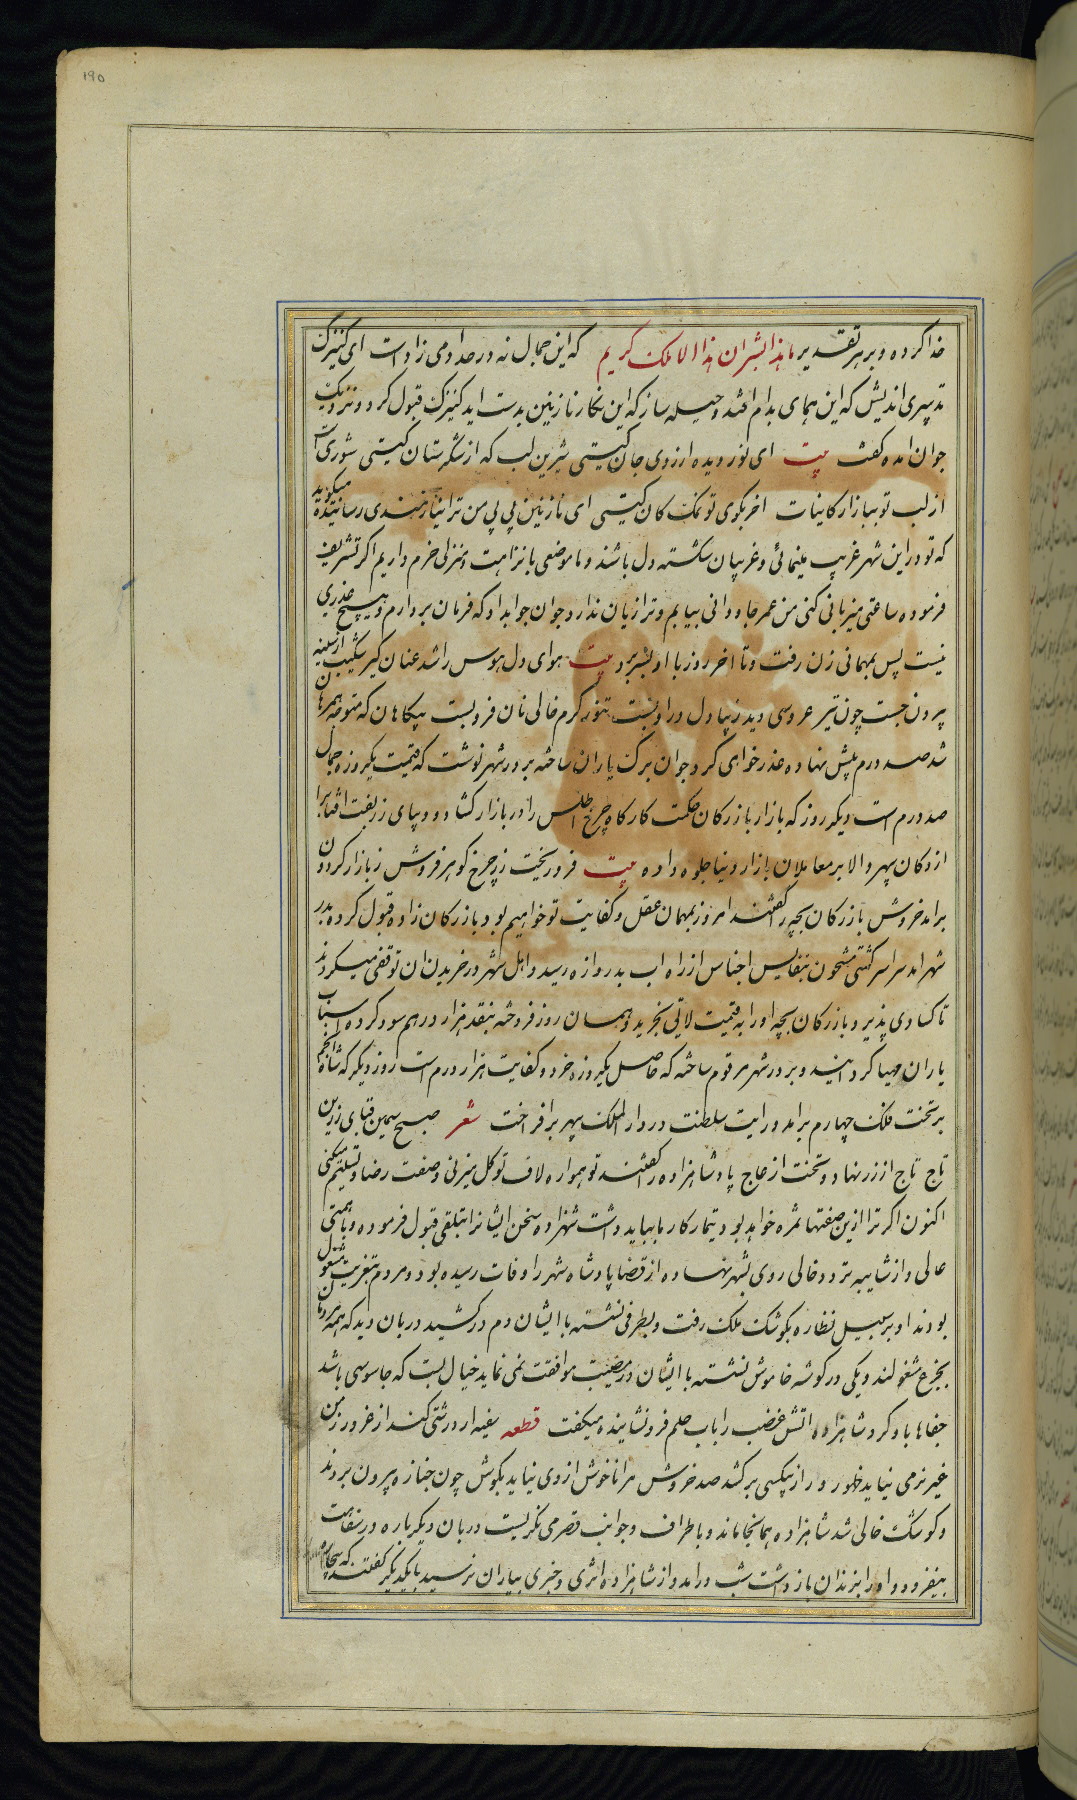 ۱۹۵
خدا کرده و بر هر تقدیر ما هذا بشرا ان هذا الا ملک کریم که این جمال نه در حد ادمی زاد است ای کنیزک
تدبیری اندیش که این همای بدام افتد و حیله ساز که این نکار نازنین بدست اید کنیزک قبول کرد و نزدیک
جوان امده کفت بیت ای نور دیده ارزوی جان کیستی شیرین لب که از شکرستان کیستی شوریست
از لب تو ببازار کاینات اخر بکوی تو نمک کان کیستی ای نازنین بی بی من ترا نیازمندی رسانیده میکوید
که تو در این شهر غریب مینمائی و غریبان شکسته دل باشند و ما موضعی با نزاهت و منزلی خرم داریم اکر تشریف
فرموده ساعتی میزبانی کنی من عمر جاودانی بیابم و ترا زیان ندارد جوان جواب داد که فرمان بردارم و هیچ عذری
نیست پس بمهمانی زن رفت و تا اخر روز با او بسر برد بیت هوای دل هوس را شد عنان کیر شکیب از سینه
بیرون جست چون تیر عروسی دید زیبا دل در او بست تنور کرم خالی نان فرو بست بیکاهان که متوجه همراهان
شد صد درم پیش نهاده عذر خواهی کرد جوان برک یاران ساخته بر در شهر نوشت که قیمت یکروزه جمال
صد درم است دیکر روز که بازار بازرکان حکمت کارکاه چرخ اطلس را در بازار کشاد و دیبای زربفت افتاب را
از دکان سپهر والا بر معاملان بازار دنیا جلوه داده بیت فرو ریخت زر چرخ کوهر فروش ز بازار کردون
برامد خروش بازرکان بچه را کفتند امروز بمهمان عقل و کفایت تو خواهیم بود بازرکان زاده قبول کرده بدر
شهر امد سراسر کشتی مشحون بنفایس اجناس از راه اب بدروازه رسید و اهل شهر در خریدن ان توقفی میکردند
تا کسادی پذیرد بازرکان بچه او را به قیمت لایق بخرید و همان روز فروخته بنقد هزار درهم سود کرده اسباب
یاران مهیا کردانید و بر در شهر مرقوم ساخته که حاصل یکروزه خرد و کفایت هزار درم است روز دیکر که شاه انجم
بر تخت فلک چهارم برامد و رایت سلطنت در دار الملک سپهر برافراخت شعر صبح سیمین قبای زرین
تاج تاج از زر نهاد و تخت از عاج پادشاهزاده را کفتند تو همواره لاف توکل میزنی و صفت رضا و تسلیم میکنی
اکنون اکر ترا از ین صفتها ثمره خواهد بود تیمار کار ما بباید داشت شهزاده سخن ایشانرا بتلقی قبول فرموده و با همتی
عالی و از شایبه تردد خالی روی بشهر نهاده از قضا پادشاه شهر را وفات رسیده بود و مردم بتعزیت مشغول
بودند او بر سبیل نظاره بکوشک ملک رفت و بطرفی نشسته با ایشان دم درکشید دربان دید که همه مردمان
بجزع مشغولند و یکی در کوشه خاموش نشسته با ایشان در مصیبت موافقت نمی نماید خیال بست که جاسوسی باشد
جفاها با او کرد شاهزاده اتش غضب را باب حلم فرو نشانیده میکفت قطعه سفیه ار درشتی کند از غرور ز من
غیر نرمی نیاید ظهور ور از بیکسی برکشد صد خروش مرا ناخوش از وی نیاید بکوش چون جنازه بیرون بردند
و کوشک خالی شد شاهزاده همانجا ماند و باطراف و جوانب قصر می نکریست دربان دیکر باره در سفاهت
بیفزود و او را بزندان باز داشت شب درامد و از شاهزاده اثری و خبری بیاران نرسید با یکدیکر کفتند که بیچاره